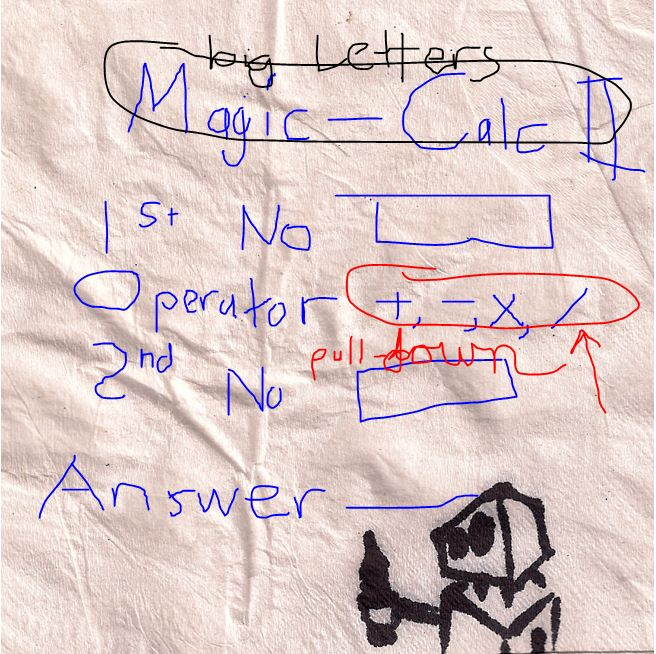 big Letters
Magic - Calc II
1st No
Operator +, -, x, /
pull-down
2nd No
Answer